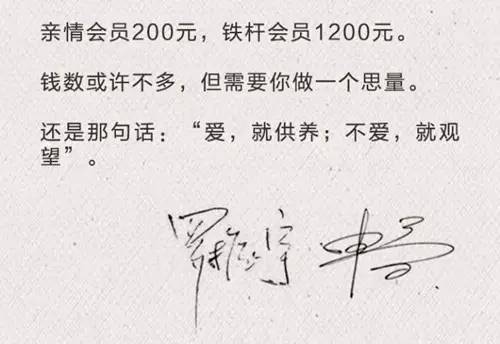 亲情会员200元，铁杆会员1200元。
钱数或许不多，但需要你做一个思量。
还是那句话：“爱，就供养；不爱，就观
望”。
罗振宇 申音